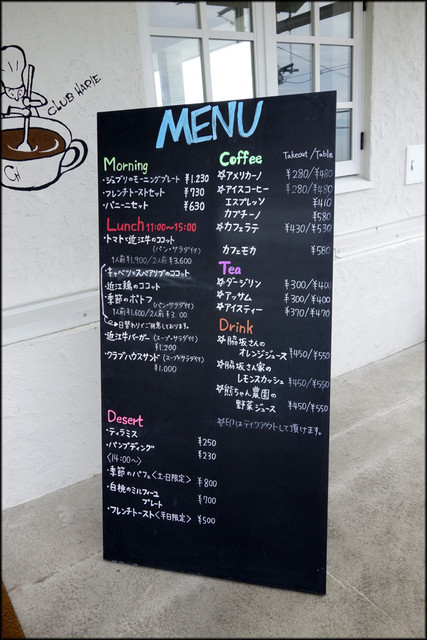 CLUB HARIE
CH
MENU
Morning
・ジュブリルモーニングプレート ¥1,230
・フレンチトーストセット ¥730
・パニーニセット ¥630
Lunch 11:00〜15:00
・トマトと近江牛のココット
(パン・サラダ付)
1人前¥1,900/2人前¥3,600
・キャベツとスペアリブのココット
・近江鶏のココット
・季節のポトフ
(パン・サラダ付)
1人前¥1,600/2人前¥3,
日替わりでご用意しております。
・近江牛バーガー(スープ・サラダ付)
¥1,200
・クラブハウスサンド(スープ・サラダ付)
¥1,000
Desert
・ティラミス ¥250
・パンプディング ¥230
〈14:00〜〉
・季節のパフェ〈土・日限定〉 ¥800
・白桃のミルフィーユ
プレート ¥700
・フレンチトースト〈平日限定〉 ¥500
Coffee Takeout/Table
☆アメリカーノ ¥280/¥480
☆アイスコーヒー ¥280/¥480
エスプレッソ ¥410
カプチーノ ¥580
☆カフェラテ ¥430/¥530
カフェモカ ¥580
Tea
☆ダージリン ¥300/¥400
☆アッサム ¥300/¥400
☆アイスティー ¥370/¥470
Drink
☆脇坂さんの
オレンジジュース ¥450/¥550
☆脇坂さん家の
レモンスカッシュ ¥450/¥550
ちゃん農園の
野菜ジュース ¥450/¥550
☆印はテイクアウトして頂けます。